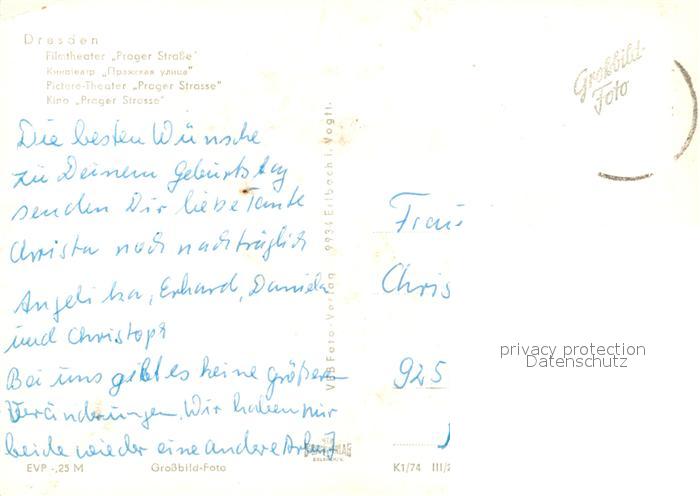 Dresden
Filmtheater „Prager Straße"
Кинотеатр „Пражская улица"
Picture-Theater „Prager Strasse"
Kino „Prager Strasse"
Die besten Wünsche
zu Deinem Geburtstag
senden Dir liebe Tante
Christa noch nachträglich
Angelika, Erhard, Daniela
und Christoph
Bei uns gibt es keine größeren
Veränderungen. Wir haben nur
beide wieder eine andere Arbeit
EVP -,25 M
Großbild-Foto
VEB Foto-Verlag 9934 Erlbach i. Vogtl.
Großbild-
Foto
Frau
Chris
925
privacy protection
Datenschutz
K1/74 III/